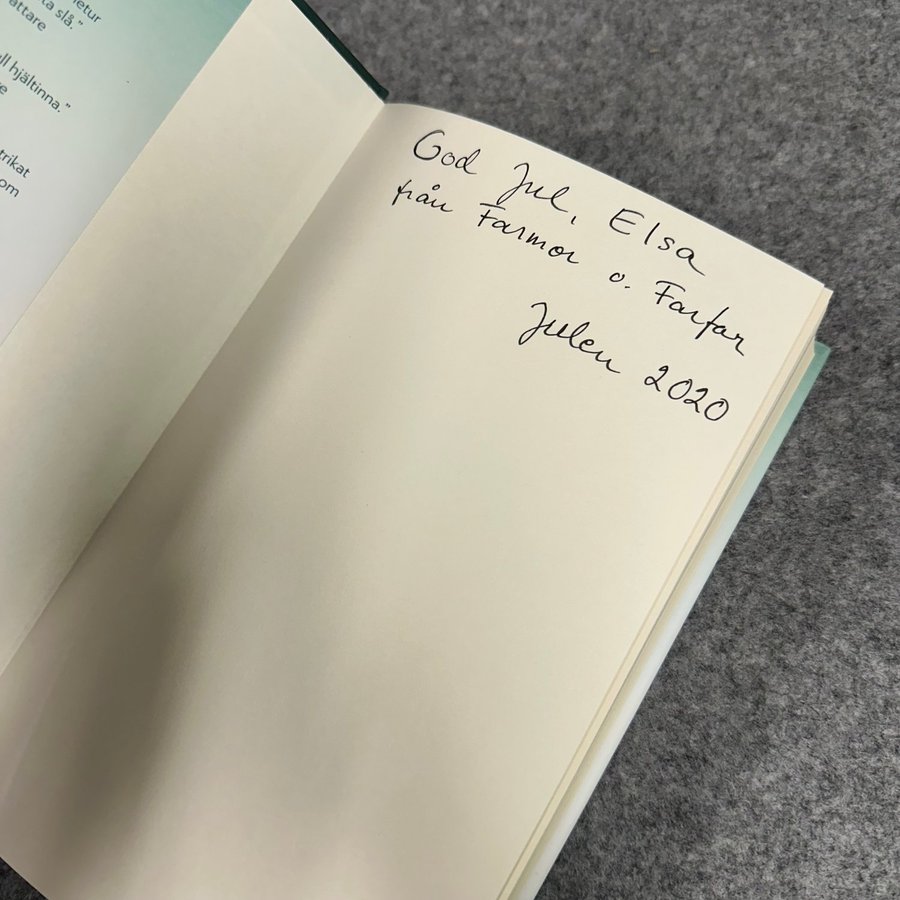 ta slå."
hjältinna."
trikat
om
God Jul, Elsa
från Farmor o. Farfar
Julen 2020